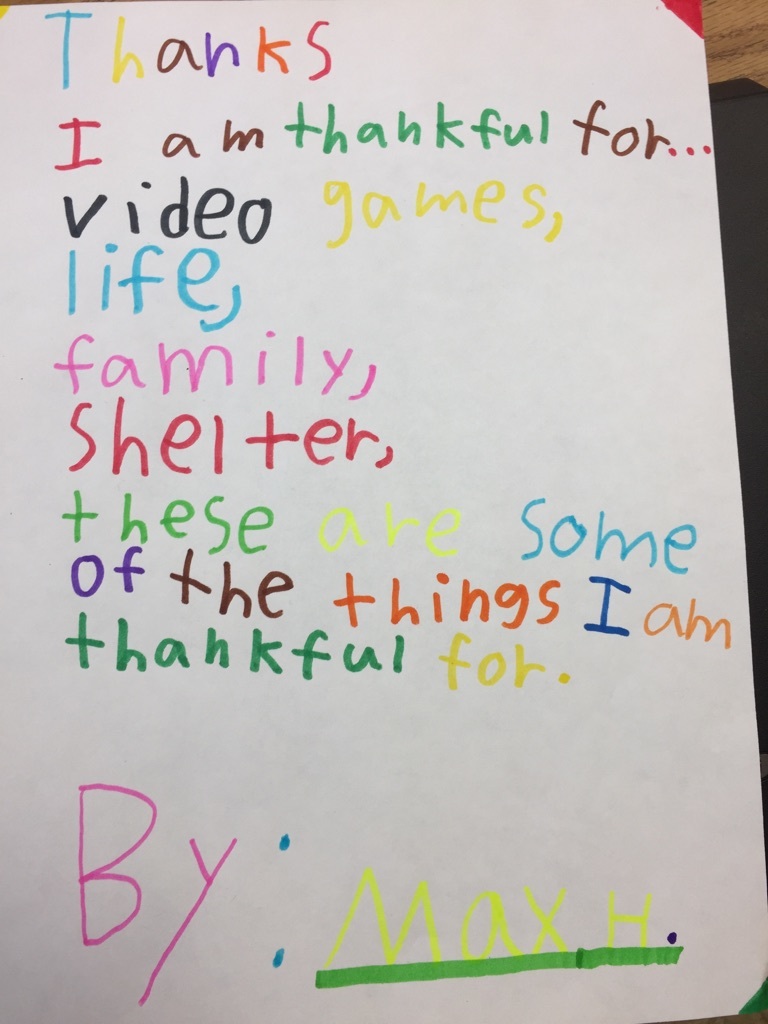 Thanks
I am thankful for...
video games,
life,
family,
Shelter,
these are some
of the things I am
thankful for.
By: Max H.